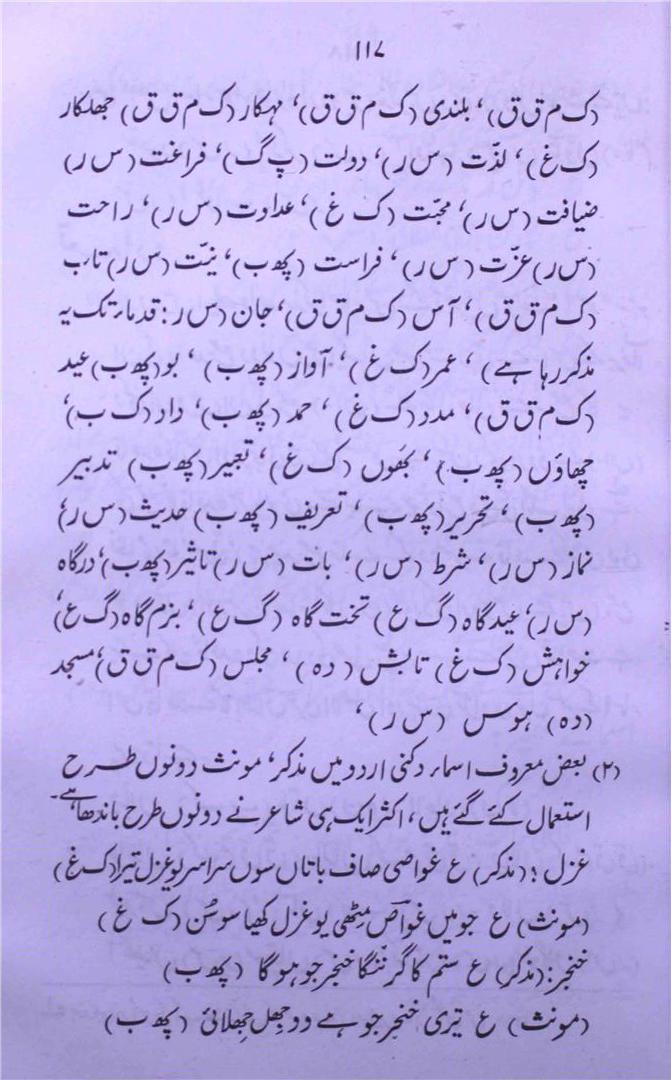 ۱۱۷
(ک م ق ق)، بلندی (ک م ق ق)، نہکار (ک م ق ق) جھلکار
(ک غ)، لذّت (س ر)، دولت (پ گ)، فراغت (س ر)
ضیافت (س ر)، محبّت (ک غ)، عداوت (س ر)، راحت
(س ر) عزت (س ر)، فراست (پھ ب)، نیّت (س ر) تاب
(ک م ق ق)، آس (ک م ق ق)، جان (س ر: قدماء تک یہ
مذکر رہا ہے)، عمر (ک غ)، آواز (پھ ب)، بو (پھ ب) عید
(ک م ق ق)، مدد (ک غ)، حمد (پھ ب)، داد (ک ب)،
چھاؤں (پھ ب)، بھَوں (ک غ)، تعبیر (پھ ب) تدبیر
(پھ ب)، تحریر (پھ ب)، تعریف (پھ ب) حدیث (س ر)،
نماز (س ر)، شرط (س ر)، بات (س ر) تاثیر (پھ ب)، درگاہ
(س ر)، عیدگاہ (گ ع) تخت گاہ (گ ع)، بزم گاہ (گ ع)،
خواہش (ک غ) تابش (دہ)، مجلس (ک م ق ق)، مسجد
(دہ) ہوس (س ر)،
(۲) بعض معروف اسماء دکنی اردو میں مذکر، مونث دونوں طرح
استعمال کئے گئے ہیں، اکثر ایک ہی شاعر نے دونوں طرح باندھا ہے۔
غزل: (مذکر) ع غواصی صاف باتاں سوں سراسر یو غزل تیرا (ک غ)
(مونث) ع جو میں غواص مِٹھی یو غزل کھیا سو سُن (ک غ)
خنجر: (مذکر) ع ستم کا گر ننگا خنجر جو ہوگا (پھ ب)
(مونث) ع تیری خنجر جو ہے دو جھل جھلائی (پھ ب)